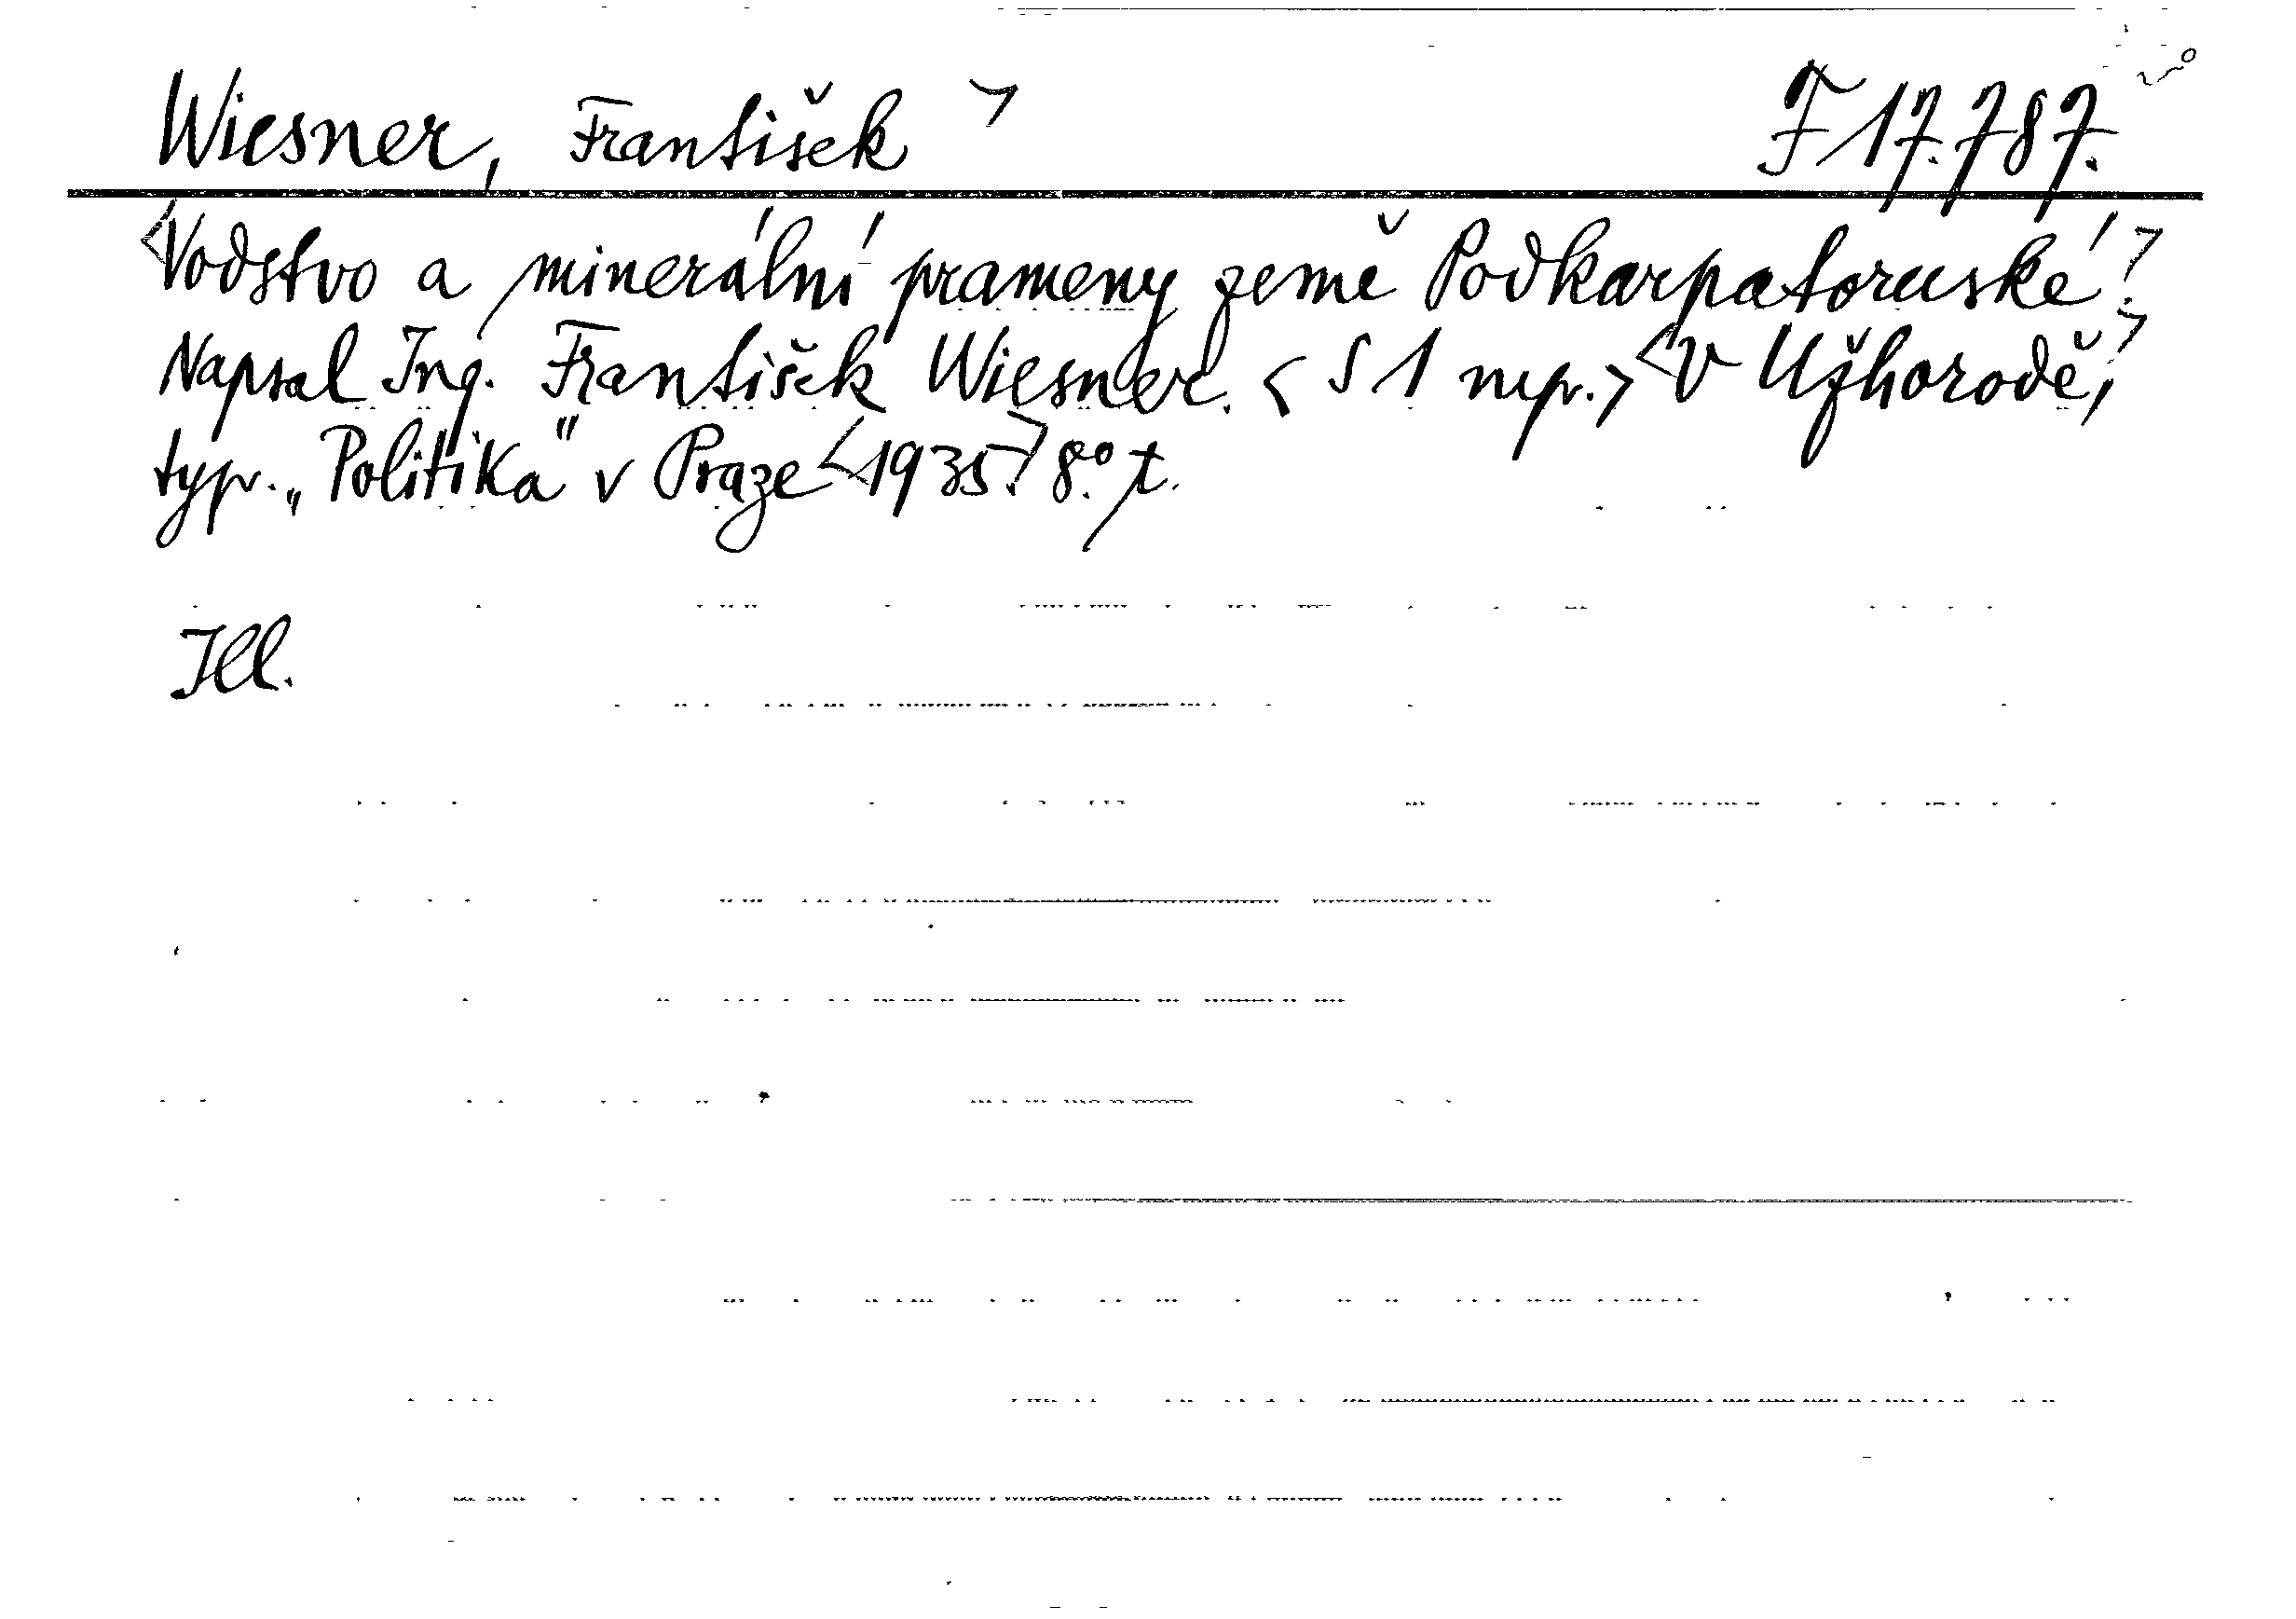 Wiesner, František > F 17.787.
<Vodstvo a minerální prameny země Podkarpatoruské.>
Napsal Ing. František Wiesner. < S 1 mp. > <V Užhorodě,>
typ. „Politika" v Praze <1935.> 8.° t.
Ill.